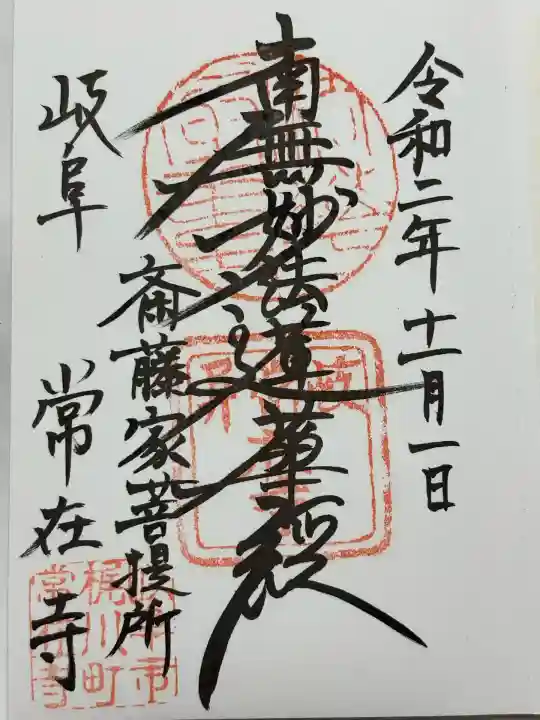 令和二年十一月一日
南無妙法蓮華経
斎藤家菩提所
岐阜 常在寺
梶川町
常在寺